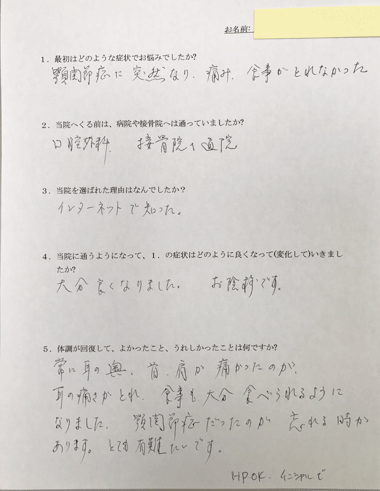 お名前:
1．最初はどのような症状でお悩みでしたか?
顎関節症に突然なり、痛み、食事がとれなかった
2．当院へくる前は、病院や接骨院へは通っていましたか?
口腔外科 接骨院へ通院
3．当院を選ばれた理由はなんでしたか?
インターネットで知った。
4．当院に通うようになって、1．の症状はどのように良くなって(変化して)いきまし
たか?
大分良くなりました。 お陰様です。
5．体調が回復して、よかったこと、うれしかったことは何ですか?
常に耳の奥、首、肩が痛かったのが、
耳の痛さがとれ、食事も大分食べられるように
なりました。顎関節症だったのが忘れる時が
あります。とても有難たいです。
HP OK. イニシャルで